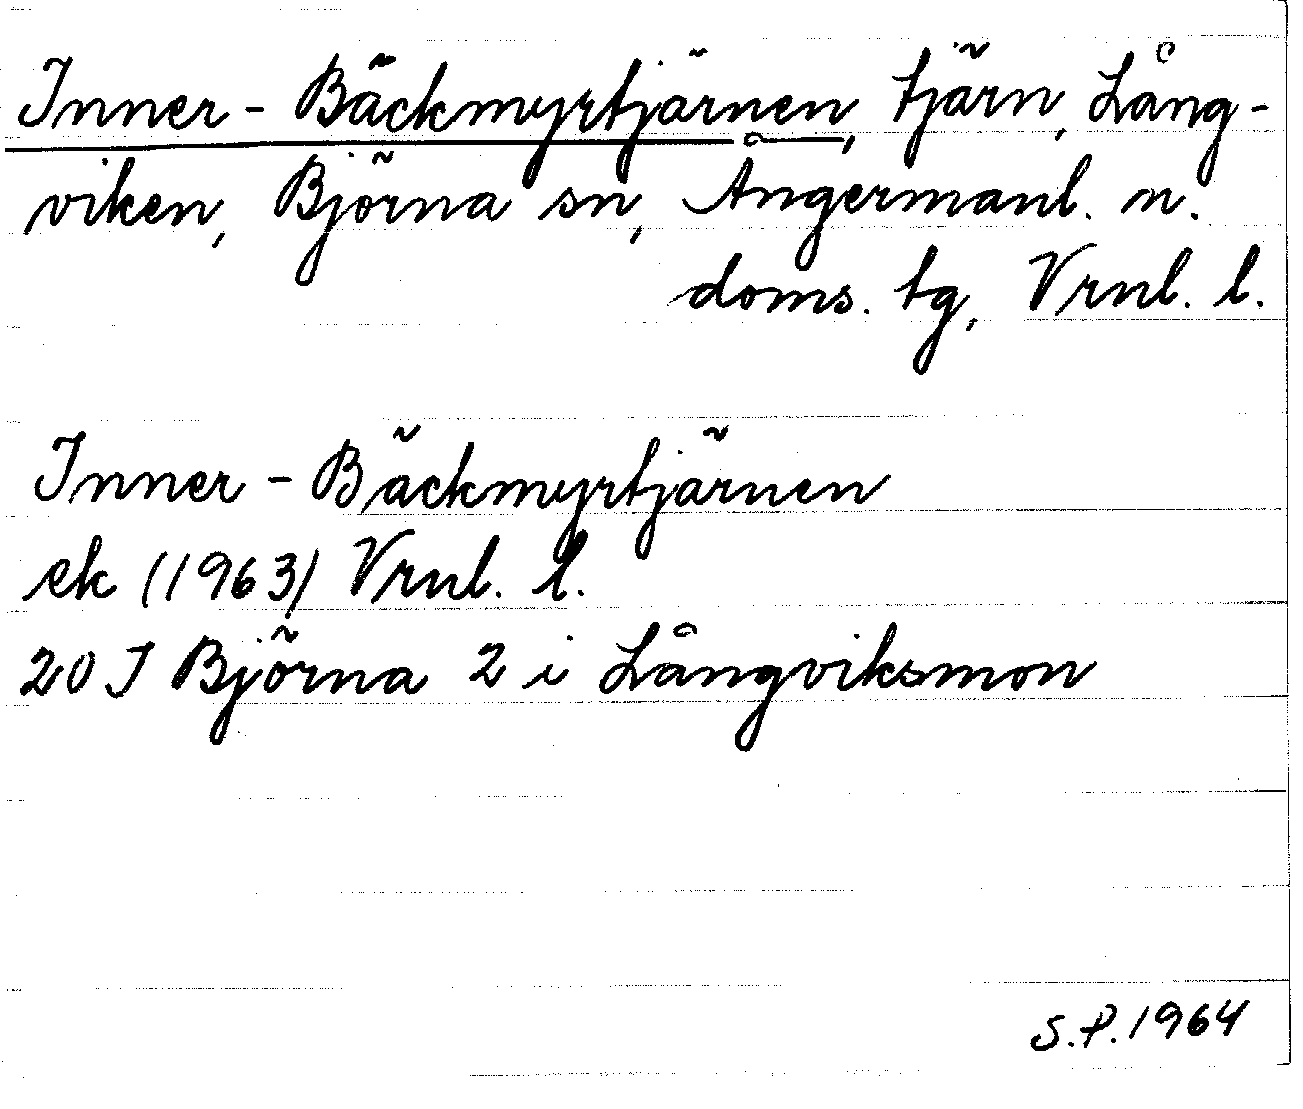 Inner-Bäckmyrtjärnen, tjärn, Lång-
viken, Björna sn, Ångermanl. n.
doms. tg, Vrnl. l.
Inner-Bäckmyrtjärnen
ek (1963) Vrnl. l.
20 J Björna 2 i Långviksmon
S.P. 1964